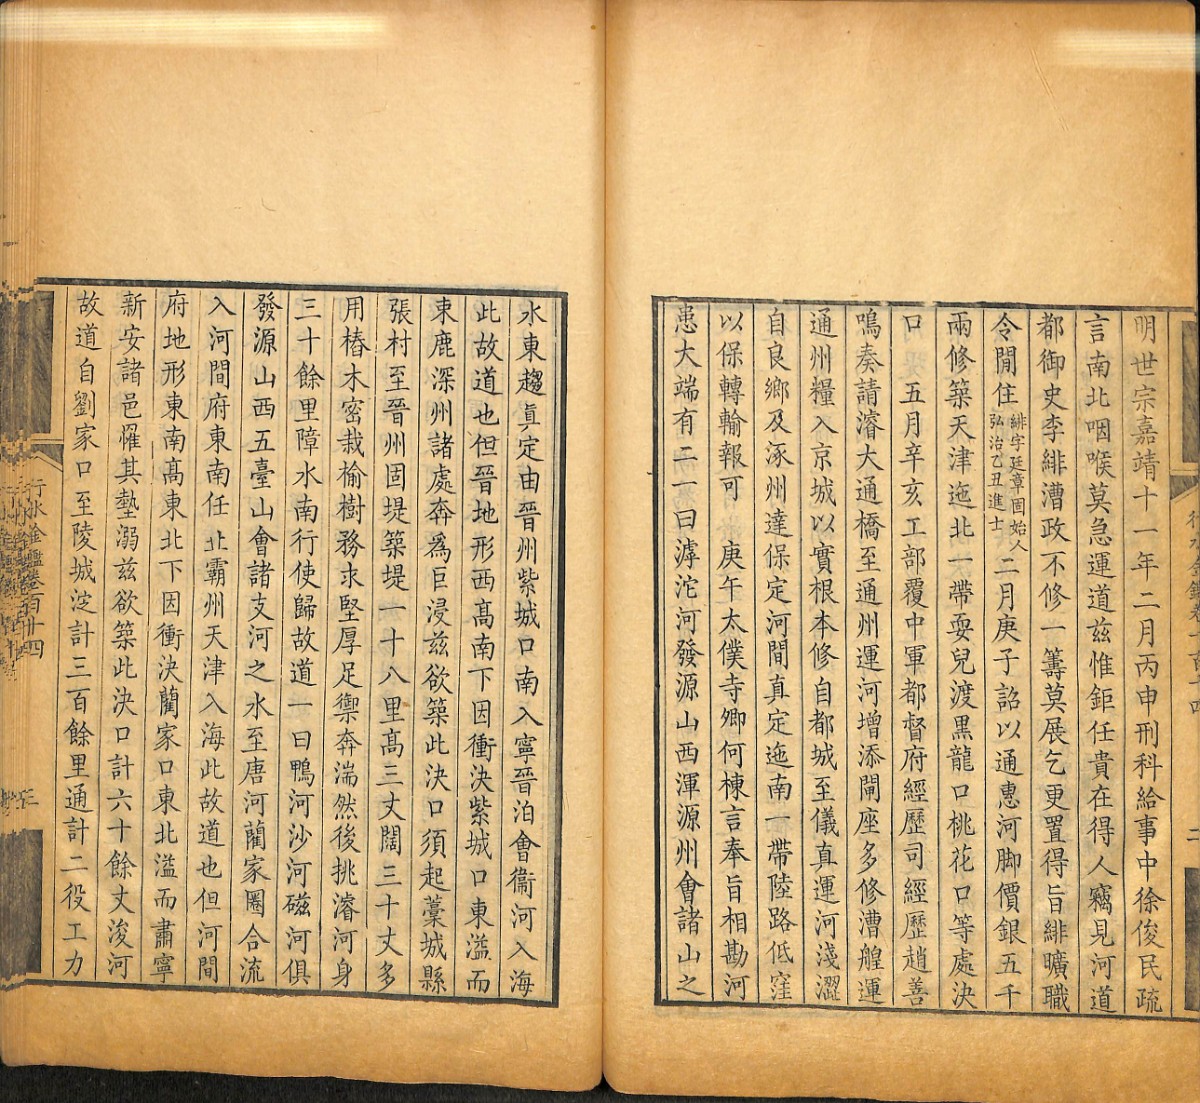 明世宗嘉靖十一年二月丙申刑科給事中徐俊民疏
言南北咽喉莫急運道兹惟鉅任貴在得人竊見河道
都御史李緋漕政不修一籌莫展乞更置得旨緋曠職
令閒住緋字廷章固始人弘治乙丑進士二月庚子詔以通惠河脚價銀五千
兩修築天津迤北一帶耍兒渡黑龍口桃花口等處決
口 五月辛亥工部覆中軍都督府經歷司經歷趙善
鳴奏請濬大通橋至通州運河增添閘座多修漕艎運
通州糧入京城以實根本修自都城至儀真運河淺澀
自良鄉及涿州達保定河間真定迤南一帶陸路低窪
以保轉輸報可 庚午太僕寺卿何棟言奉旨相勘河
患大端有二一曰滹沱河發源山西渾源州會諸山之
水東趨眞定由晉州紫城口南入寧晉泊會衞河入海
此故道也但晉地形西髙南下因衝決紫城口東溢而
東鹿深州諸處奔爲巨浸兹欲築此決口須起藁城縣
張村至晉州固堤築堤一十八里髙三丈闊三十丈多
用樁木密栽榆樹務求堅厚足禦奔湍然後挑濬河身
三十餘里障水南行使歸故道一曰鴨河沙河磁河俱
發源山西五臺山會諸支河之水至唐河蘭家圈合流
入河間府東南任北霸州天津入海此故道也但河間
府地形東南髙東北下因衝決蘭家口東北溢而肅寧
新安諸邑罹其墊溺兹欲築此決口計六十餘丈浚河
故道自劉家口至陵城淀計三百餘里通計二役工力
行水金鑑卷百十四